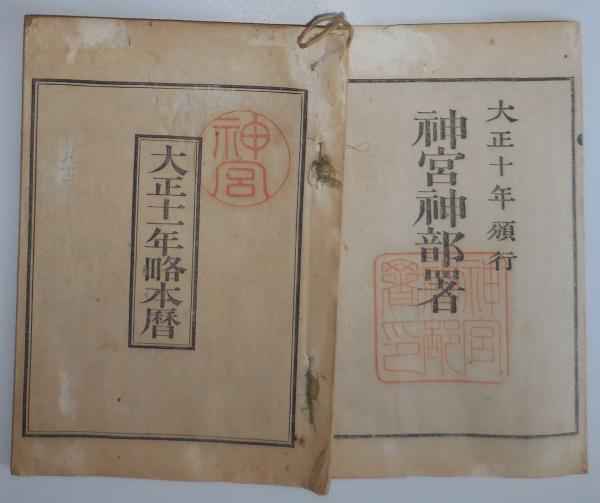 大正十年頒行
神宮神部署
神宮神部署之印
神宮
大正十一年略本暦